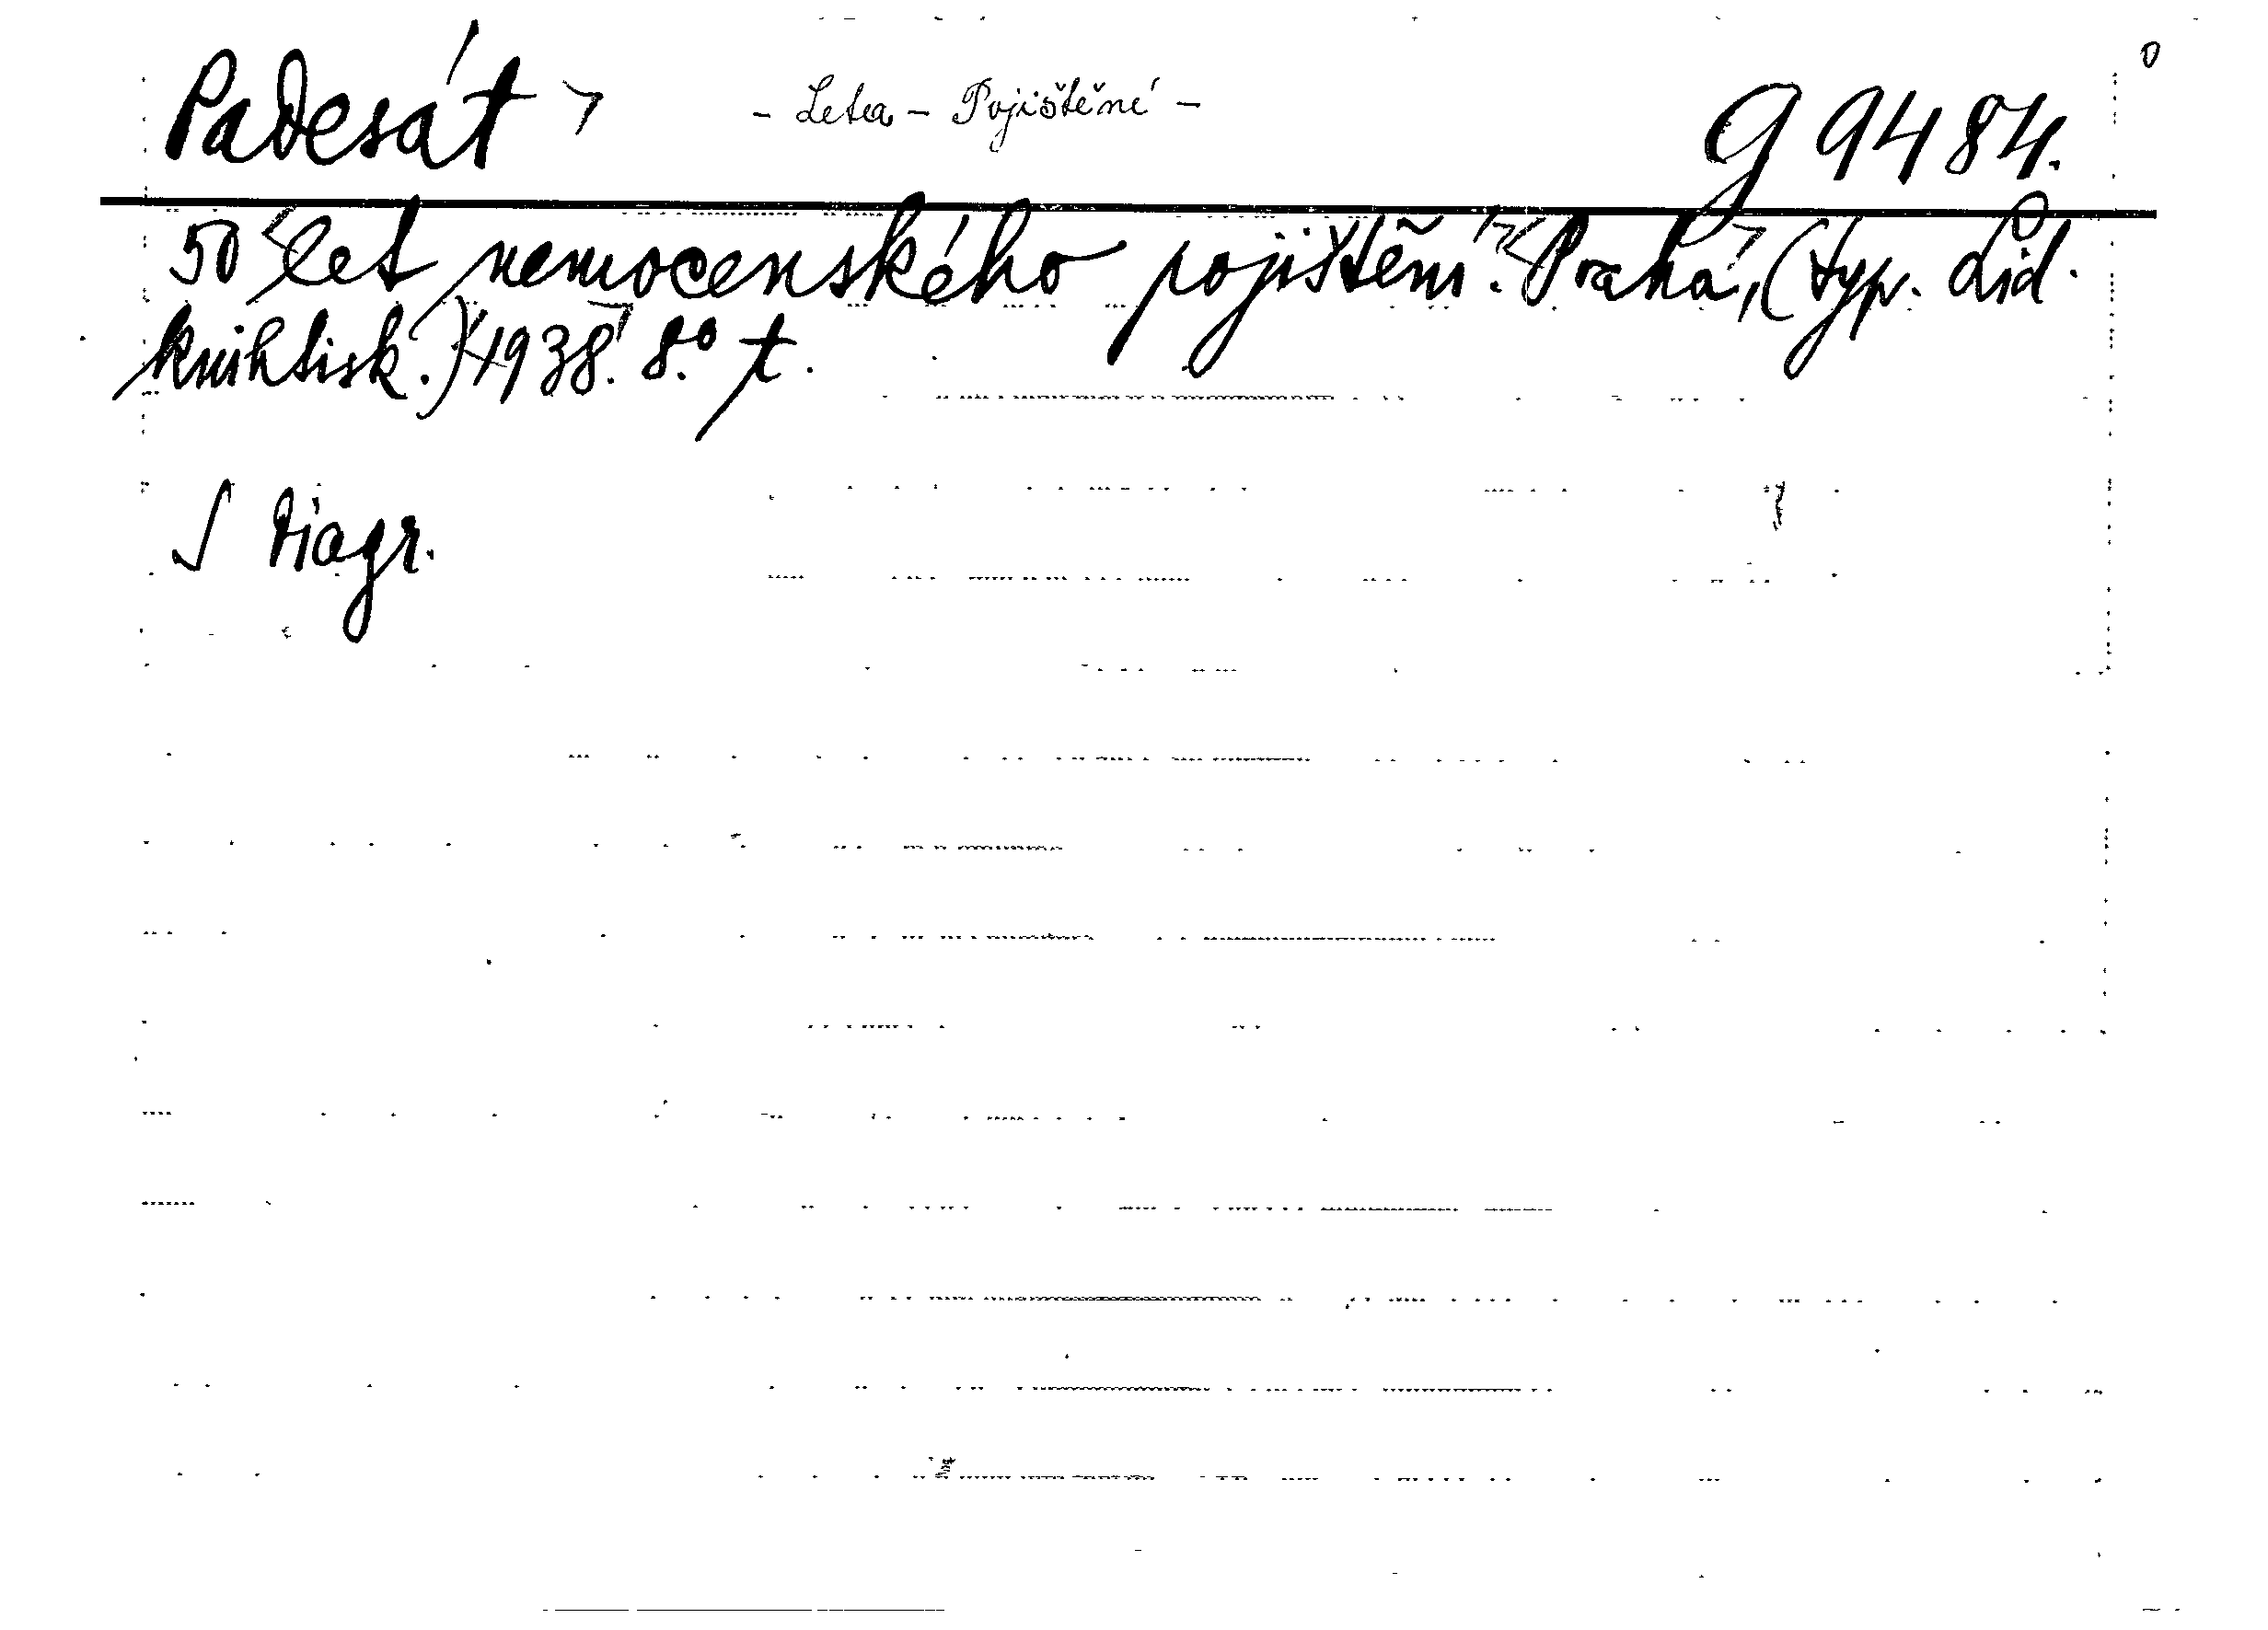 Padesát - Letea - Pojištěné - G 9484.
50 let nemocenského pojištění. Praha, (typ. Lid.
knihtisk.) 1938. 8.° t.
S diagr.